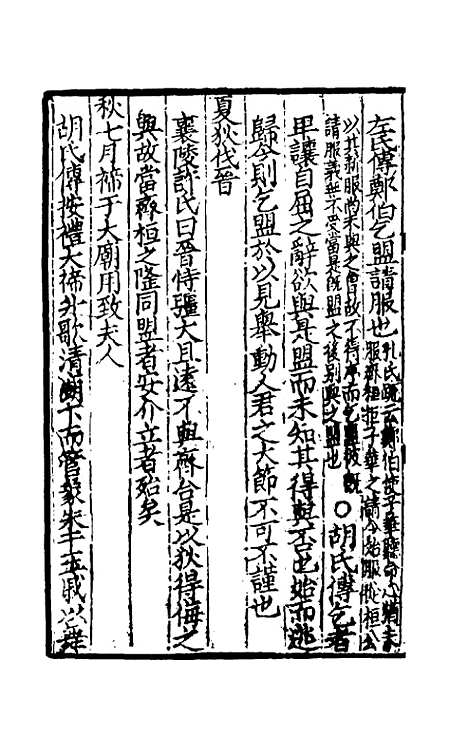 左氏傳鄭伯乞盟請服也孔氏云鄭伯使子華聽命心猶未
服齊桓拒子華之請今始服從桓公
以其新服尚未與之會故不得序而乞盟彼既
請服義無不受當是既盟之後別與之盟也○胡氏傳乞者
卑讓自屈之辭欲與是盟而未知其得與不也始而逃
歸今則乞盟於以見舉動人君之大節不可不謹也
夏狄伐晉
襄陵許氏曰晉恃疆大且遠不與齊合是以狄得侮之
與故當齊桓之隆同盟者安介立者殆矣
秋七月禘于大廟用致夫人
胡氏傳按禮大禘升歌清廟下而管象朱干玉戚以舞